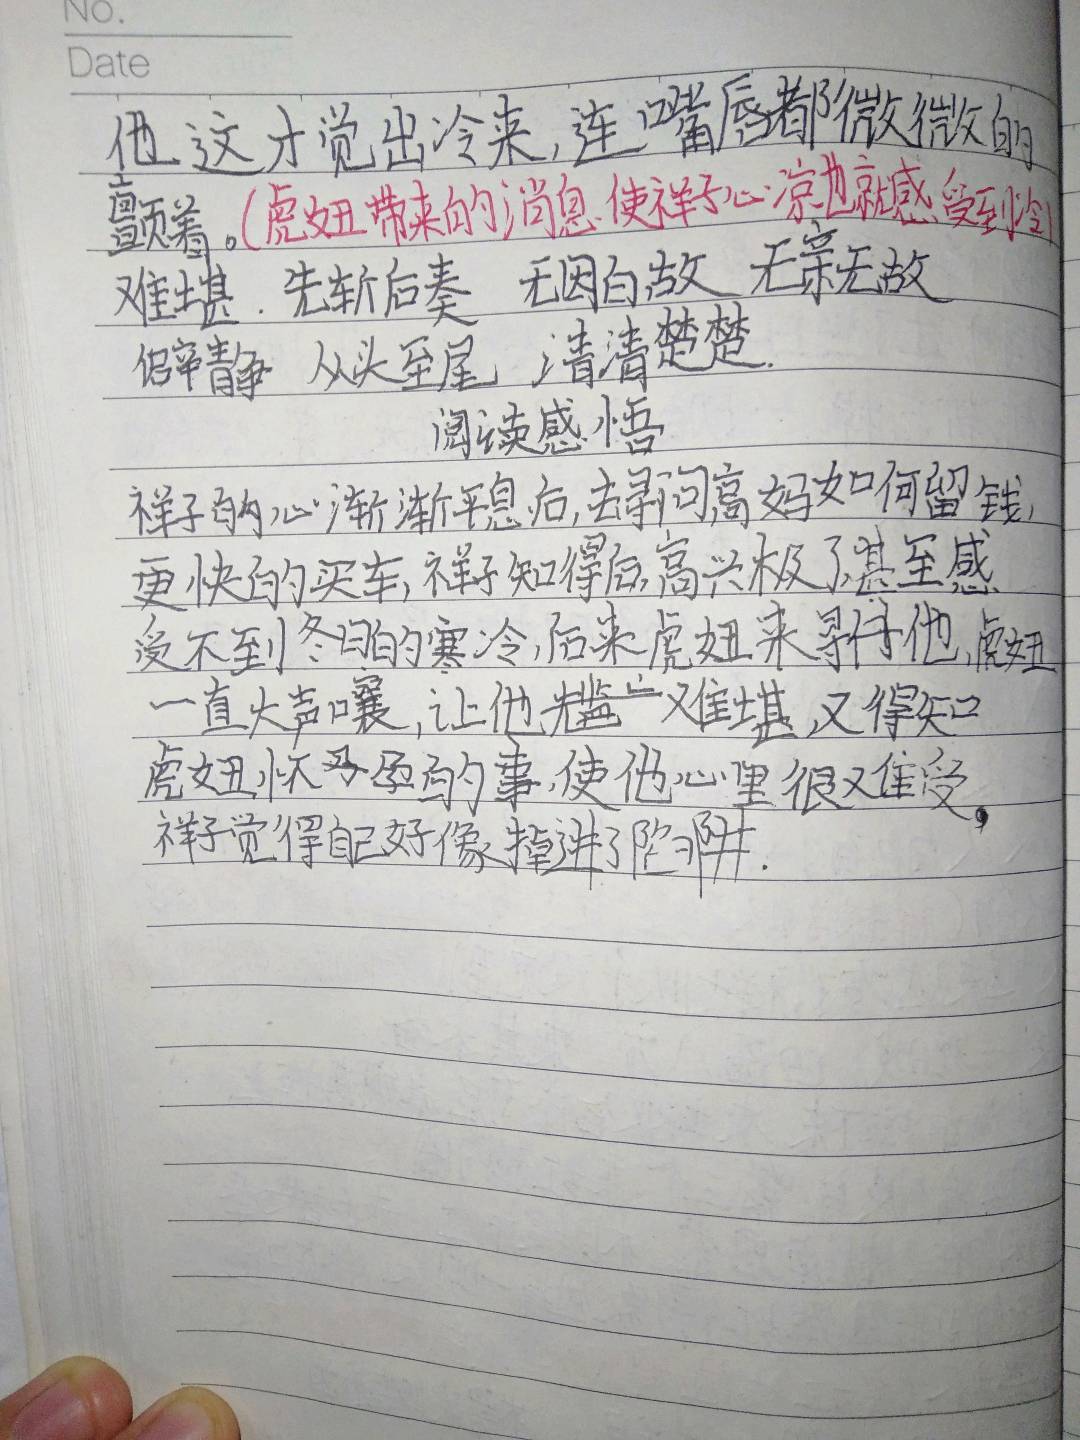 No.
Date
他这才觉出冷来,连嘴唇都微微的
颤着。(虎妞带来的消息、使祥子心凉也就感受到冷)
难堪.先斩后奏 无因白故 无亲无故
僻静 从头至尾 清清楚楚.
阅读感悟
祥子的心渐渐平息后,去寻问高妈如何留钱,
更快的买车,祥子知得后,高兴极了,甚至感
受不到冬日的寒冷,后来虎妞来寻他,虎妞
一直大声嚷,让他尴尬难堪,又得知
虎妞怀孕的事,使他心里很难受。
祥子觉得自己好像掉进了陷阱.